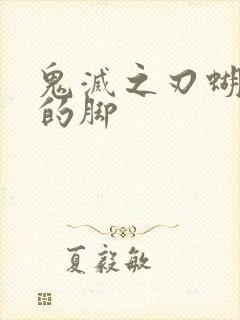 鬼滅之刃蝴
的脚
夏毅敏